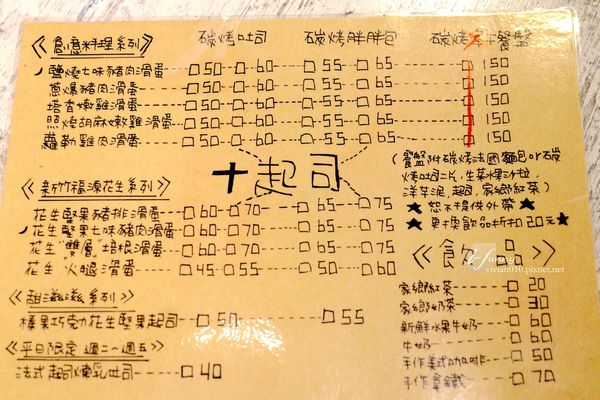 《創意料理系列》 碳烤吐司 碳烤胖胖包 碳烤 餐盤
鹽燒七味豬肉滑蛋 □50 □60 □55 □65 □150
蔥爆豬肉滑蛋 □50 □60 □55 □65 □150
塔香嫩雞滑蛋 □50 □60 □55 □65 □150
照燒胡麻嫩雞滑蛋 □50 □60 □55 □65 □150
蘿勒雞肉滑蛋 □50 □60 □55 □65 □150
十起司
(餐盤附碳烤法國麵包or碳
烤吐司二片,生菜水果沙拉,
洋芋泥,起司,家鄉紅茶)
★恕不提供外帶★
★更換飲品折扣20元★
《新竹福源花生系列》
花生堅果豬排滑蛋 □60 □70 □65 □75
花生堅果七味豬肉滑蛋 □60 □70 □65 □75
花生"雙層"培根滑蛋 □60 □70 □65 □75
花生火腿滑蛋 □45 □55 □50 □60
《甜滋滋系列》
榛果巧克力花生堅果起司 □50 □55
《平日限定 週二~週五》
法式起司煉乳吐司 □40
《飲品》
vivian010.pixnet.net
家鄉紅茶 □20
家鄉奶茶 □30
新鮮水果牛奶 □60
牛奶 □60
手作美式咖啡 □50
手作拿鐵 □70